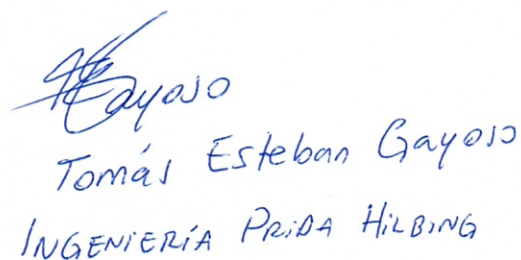 Gayoso
Tomás Esteban Gayoso
INGENIERÍA PRIDA HILBING